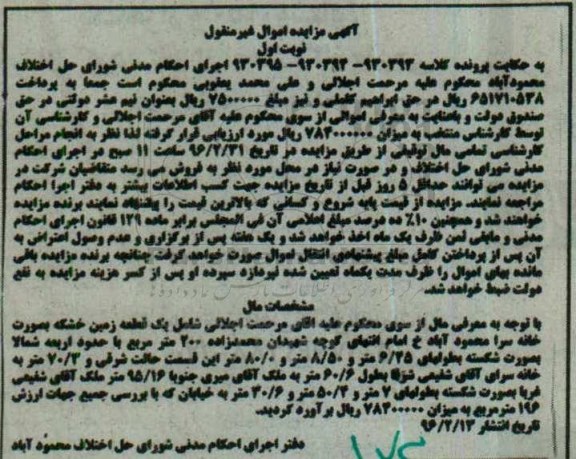 آگهی مزایده اموال غیرمنقول
نوبت اول
به حکایت پرونده کلاسه ۹۳۰۳۹۳- ۹۳۰۳۹۴- ۹۳۰۳۹۵ اجرای احکام مدنی شورای حل اختلاف
محمودآباد محکوم علیه مرحمت اجلالی و علی محمد یعقوبی محکوم است جمعا به پرداخت
۶۵۱۷۱۰۵۳۸ ریال در حق ابراهیم کاملی و نیز مبلغ ۷۵۰۰۰۰۰ ریال بعنوان نیم عشر دولتی در حق
صندوق دولت و باعنایت به معرفی اموالی از سوی محکوم علیه آقای مرحمت اجلالی و کارشناسی آن
توسط کارشناس منتخب به میزان ۷۸۴۰۰۰۰۰۰ ریال مورد ارزیابی قرار گرفته لذا نظر به انجام مراحل
کارشناسی تمامی مال توقیفی از طریق مزایده در تاریخ ۹۶/۲/۳۱ ساعت ۱۱ صبح در اجرای احکام
مدنی شورای حل اختلاف و در صورت نیاز در محل مورد نظر به فروش می رسد متقاضیان شرکت در
مزایده می توانند حداقل ۵ روز قبل از تاریخ مزایده جهت کسب اطلاعات بیشتر به دفتر اجرا احکام
مراجعه نمایند. مزایده از قیمت پایه شروع و کسانی که بالاترین قیمت را پیشنهاد نمایند برنده مزایده
خواهند شد و همچنین ۱۰٪ ده درصد مبلغ اعلامی آن فی المجلس برابر ماده ۱۲۹ قانون اجرای احکام
مدنی و مابقی ثمن ظرف یک ماه اخذ خواهد شد و یک هفته پس از برگزاری و عدم وصول اعتراض به
آن پس از پرداختن کامل مبلغ پیشنهادی انتقال اموال صورت خواهد گرفت چنانچه برنده مزایده باقی
مانده بهای اموال را ظرف مدت یکماه تعیین شده نپردازد سپرده او پس از کسر هزینه مزایده به نفع
دولت ضبط خواهد شد.
مشخصات مال
با توجه به معرفی مال از سوی محکوم علیه اقای مرحمت اجلالی شامل یک قطعه زمین خشکه بصورت
خانه سرا محمود آباد خ امام انتهای کوچه شهیدان محمدزاده ۲۰۰ متر مربع با حدود اربعه شمالا
بصورت شکسته بطولهای ۶/۳۵ متر و ۸/۵۰ متر و ۸/۰ متر این قسمت حالت شرقی و ۷۰/۳ متر به
خانه سرای آقای شفیعی شرقا بطول ۶۰/۶ متر به ملک آقای میری جنوبا ۹۵/۱۶ متر ملک آقای شفیعی
غربا بصورت شکسته بطولهای ۷ متر و ۵۰/۴ متر و ۳۰/۶ متر به خیابان که با بررسی جمیع جهات ارزش
۱۹۶ مترمربع به میزان ۷۸۴۰۰۰۰۰۰ ریال برآورد گردید.
تاریخ انتشار ۹۶/۲/۱۳
دفتر اجرای احکام مدنی شورای حل اختلاف محمود آباد